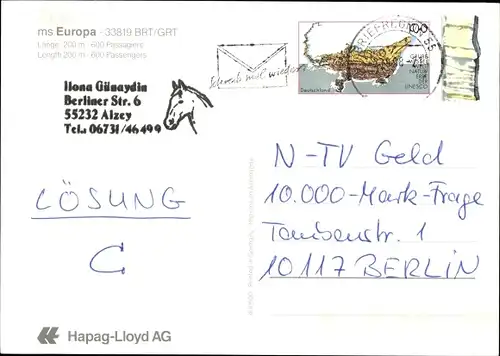 ms Europa - 33819 BRT/GRT
Länge 200 m - 600 Passagiere
Length 200 m - 600 Passengers
Ilona Günaydin
Berliner Str. 6
55232 Alzey
Tel.: 06731/46499
Schreib mal wieder
BRIEFREGION 55
Deutschland
UNESCO
N-TV Geld
10.000-Mark-Frage
Taubenstr. 1
10117 BERLIN
LÖSUNG
C
Hapag-Lloyd AG